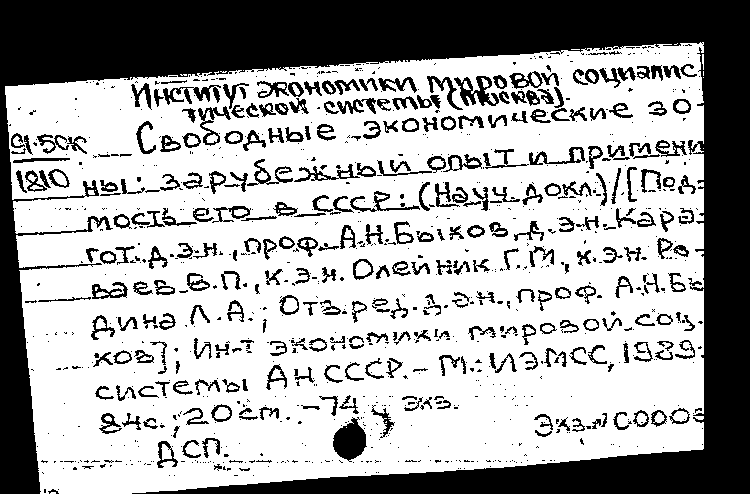 Институт экономики мировой социалис
тической системы (Москва).
91-5СК Свободные экономические зо-
1810 ны: зарубежный опыт и примени
мость его в СССР: (Науч. докл.)/[Под-
гот. д.э.н., проф. А.Н.Быков, д.э.н. Кара-
ваев В.П., к.э.н. Олейник Г.М., к.э.н. Ро-
дина Л.А.; Отв. ред. д.э.н., проф. А.Н.Бы
ков]; Ин-т экономики мировой соц.
системы АН СССР. - М.: ИЭМСС, 1989.
84с.; 20 см. - 74 экз.
ДСП. Экз.N С0006